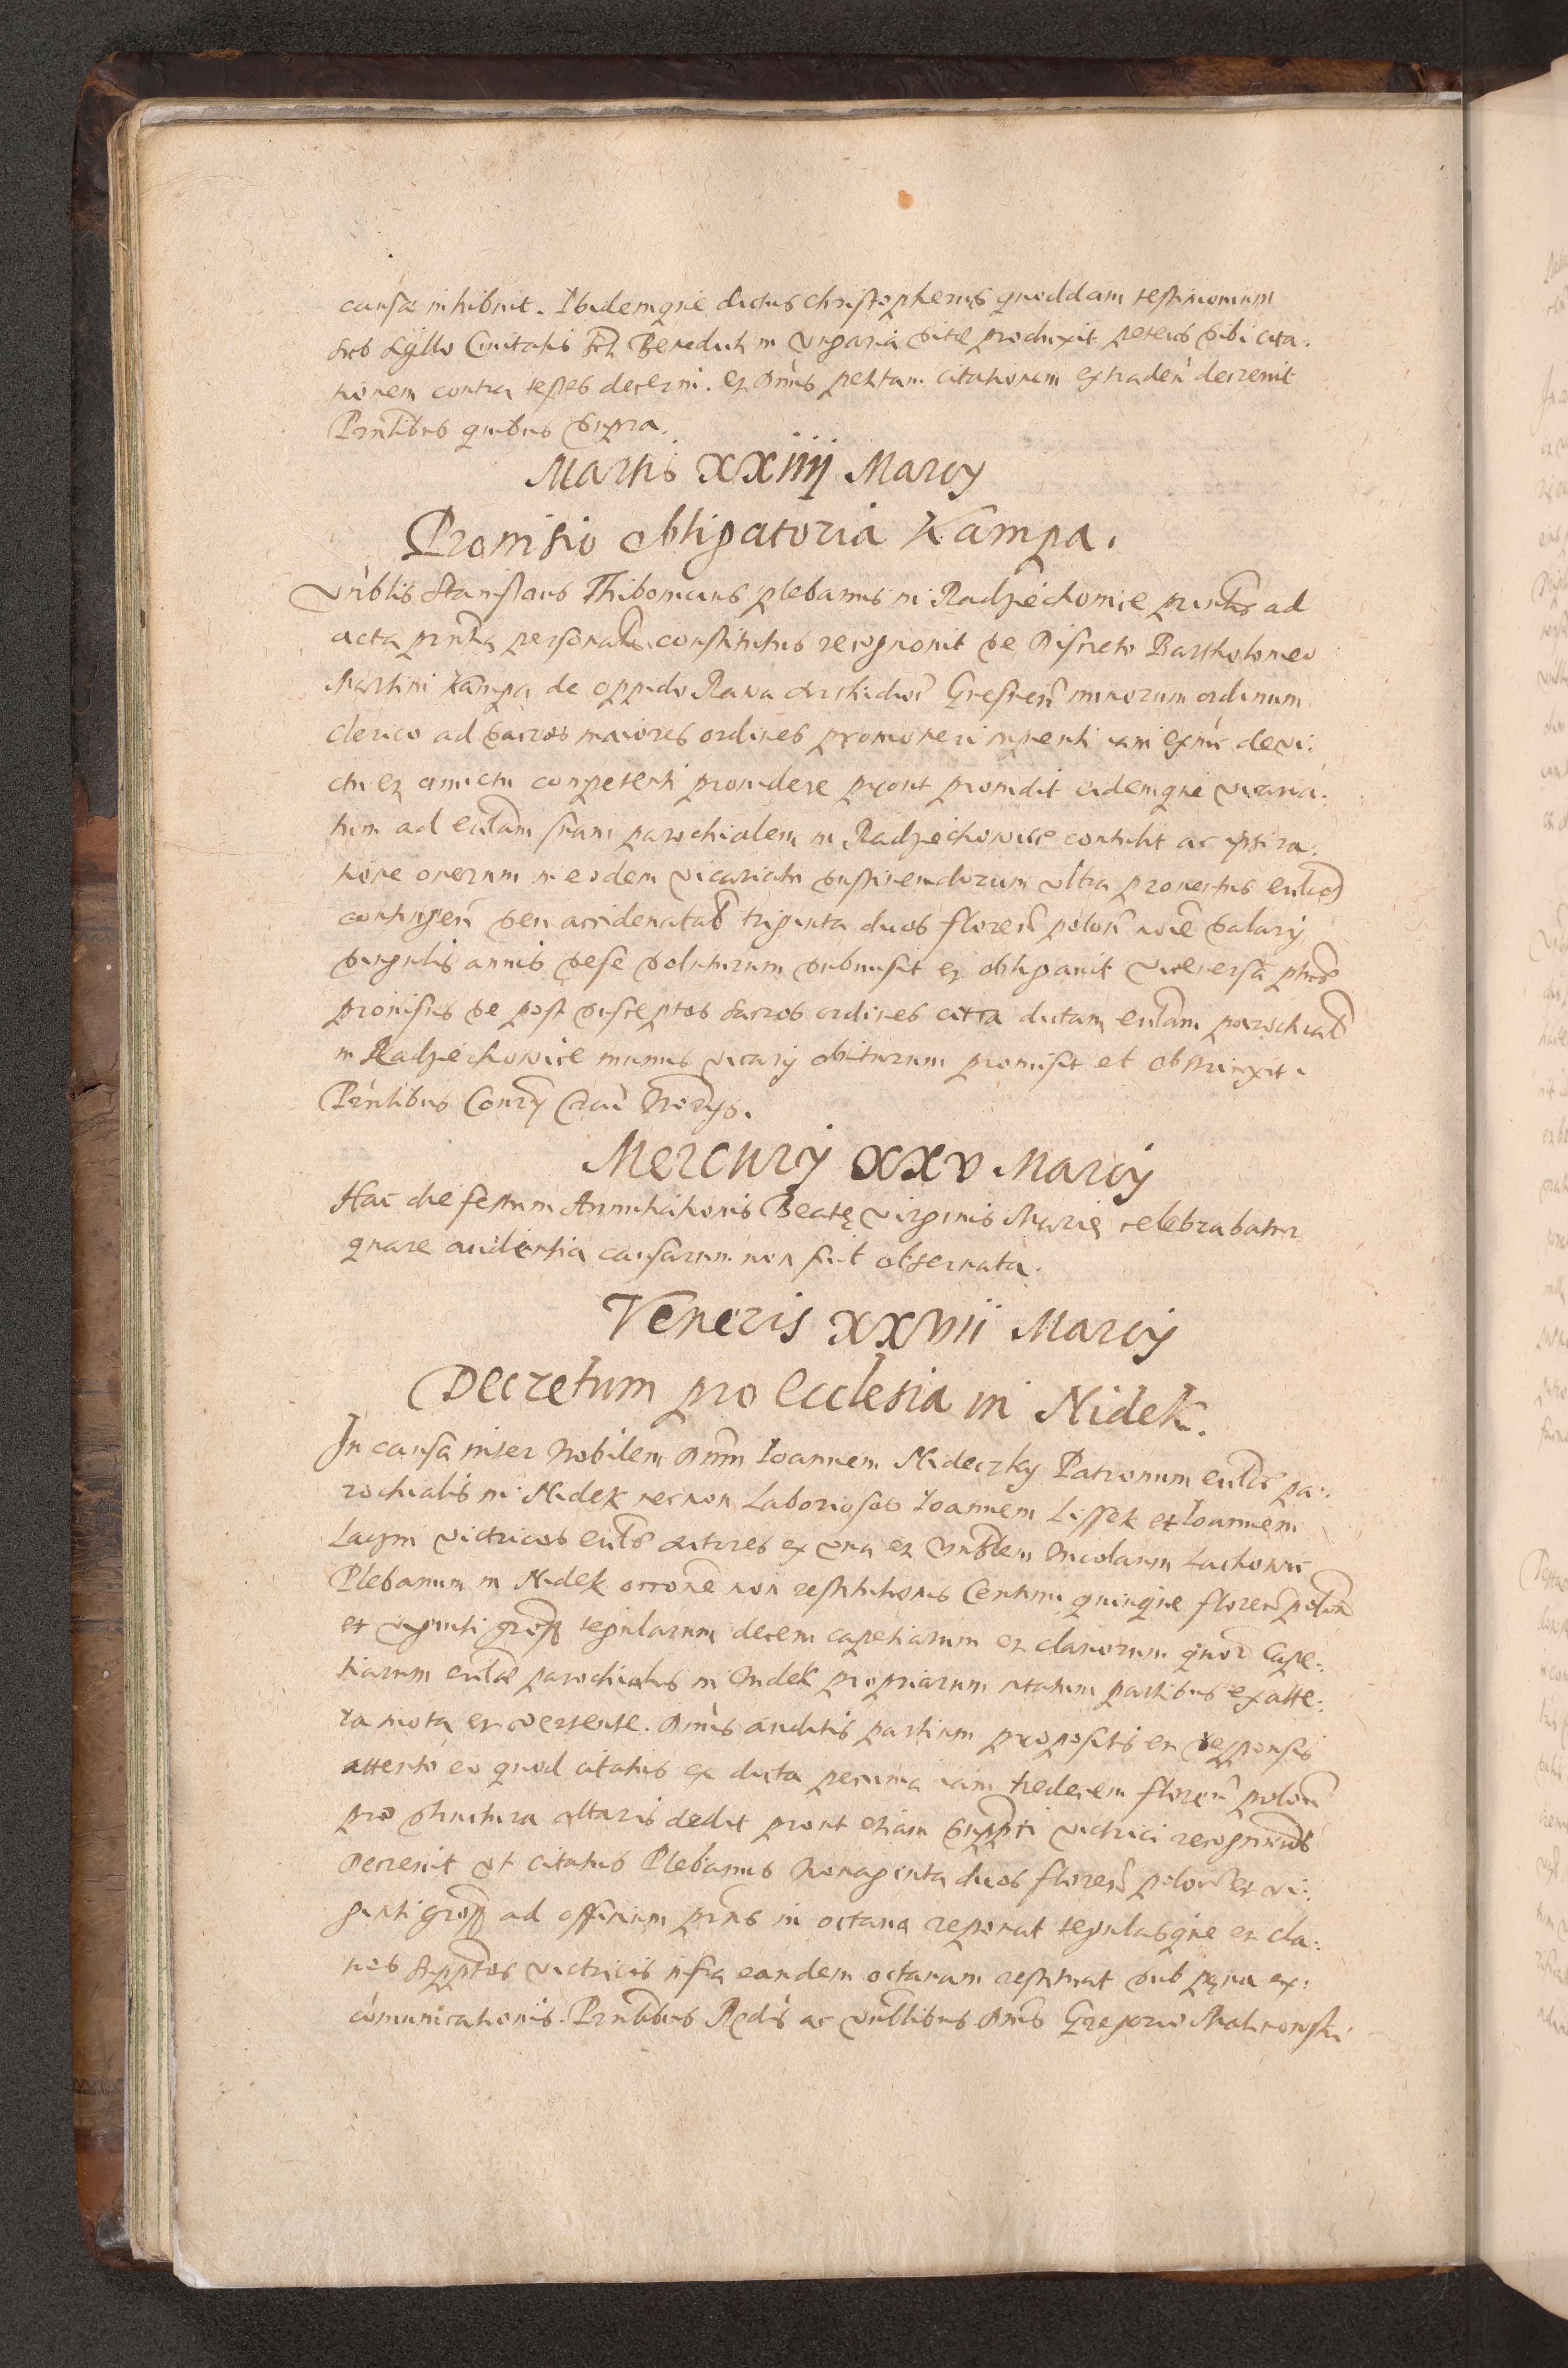 causæ inhibuit. Ibidemque dictus Christopherus quoddam testimonium
sub sygillo Civitatis Benedicti in Vngaria site produxit petens sibi cita:
tionem contra testes decerni. et Dnus petitam citationem extraden decrevit
Prntibus quibus supra.
Martis XXIIII Marcy
Provisio obligatoria Kampa.
Vnblis Stanislaus Thibomcius plebanus in Radzechowice ad
acta prntia personalr constitutus recognovit se Discreto Bartholomeo
Martini Kampa de oppido Rava Archidioc Gnesnen minorum ordinum
clerico ad sacros maiores ordines promoveri cupienti iam de vi:
ctu et amictu competenti providere prout providit eidemque vicaria:
tum ad ecclam suam parochialem in Radzechowice contulit ac ipsi ra:
tione onerum in eodem vicariatu sustinendorum vltra proventus
contingen seu accidentat triginta duos floren polon noie salarij
singulis annis sese soluturum submisit et obligavit viceversa
provisus se post susceptos sacros ordines circa dictam ecclam parochial
in Radzechowice munus vicarij obiturum promisit et obstrinxit.
Prntibus Conrij Crac Notrijs.
Mercurij XXV Marcij
Hac die festum Annutiationis Beatę Virginis Marię celebrabatur
quare audientia causarum non fuit observata.
Veneris XXVII Marcij
Decretum pro Ecclesia in Nidek.
In causa inter Nobilem Dnm Ioannem Nideczky Patronum eccliæ pa:
rochialis in Nidek necnon Laboriosos Ioannem Lissek et Ioannem
Lacym victricos eccliæ actores ex vna et Vnblem Nicolaum Lachowic
Plebanum in Nidek occone non restitutionis Centum quinque floren polon
et viginti gross tegularum decem capetiarum et clavorum quor Cape:
tiarum eccliæ parochialis in Nidek propriarum citatum partibus ex alte:
ra mota et vertente. Dnus auditis partium propositis et responsis
attento eo quod citatus ex dicta pecunia iam tredecem floren polon
pro structura altaris dedit prout etiam suppti victrici recognoverunt
Decrevit vt citatus Plebanus Nonaginta duos floren polon et vi:
ginti gross ad officium prns in octava reponat tegulasque et cla:
vos suppttos victricis infra eandem octavam restituat sub pęna ex:
comunicationis. Prntibus Rdis ac vnblibus Dnis Gregorio